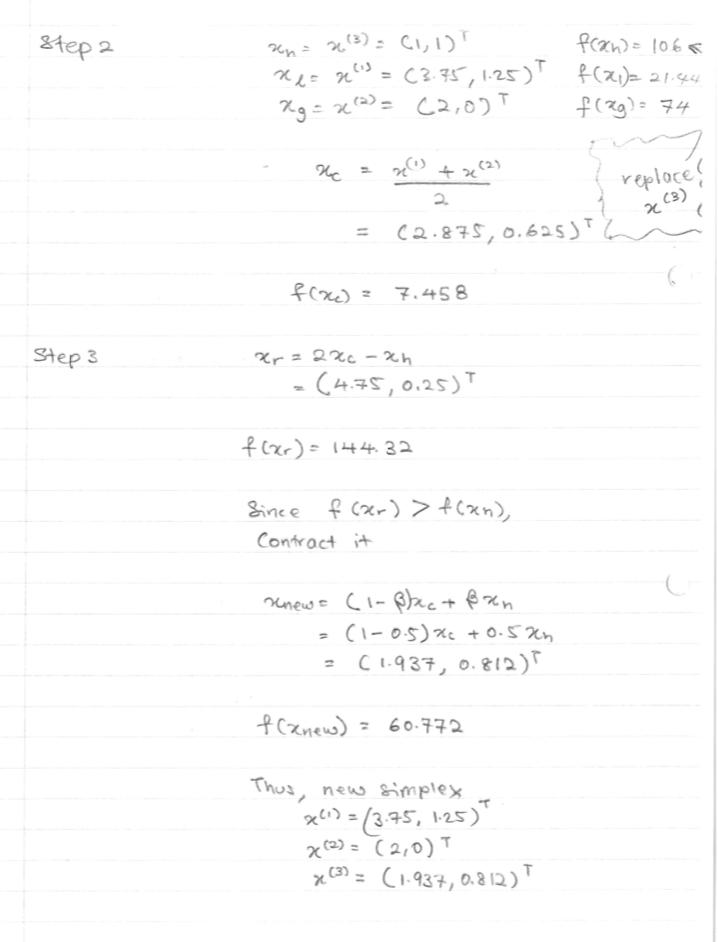 Step 2
xh = x^(3) = (1,1)^T f(xh) = 106
xl = x^(1) = (3.75, 1.25)^T f(xl) = 21.44
xg = x^(2) = (2,0)^T f(xg) = 74
xc = (x^(1) + x^(2)) / 2
replace x^(3)
= (2.875, 0.625)^T
f(xc) = 7.458
Step 3
xr = 2xc - xh
= (4.75, 0.25)^T
f(xr) = 144.32
Since f(xr) > f(xh),
Contract it
xnew = (1-β)xc + βxh
= (1-0.5)xc + 0.5xh
= (1.937, 0.812)^T
f(xnew) = 60.772
Thus, new simplex
x^(1) = (3.75, 1.25)^T
x^(2) = (2,0)^T
x^(3) = (1.937, 0.812)^T